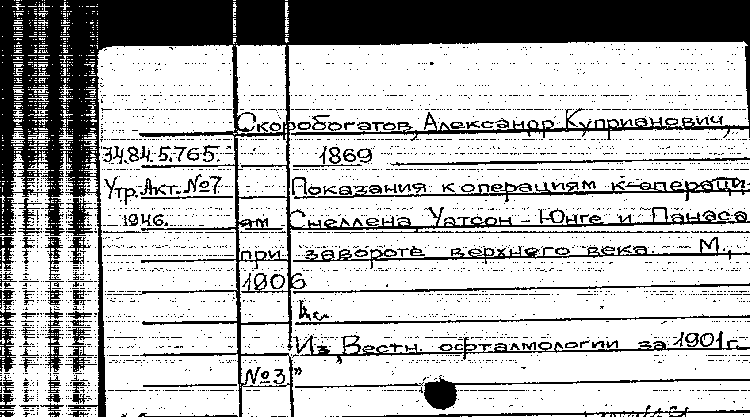 Скоробогатов, Александр Куприанович,
3484.5.765. 1869
Утр. Акт. №7 Показания к операциям к-операци-
1946. ям Снеллена, Уатсон-Юнге и Панаса
при завороте верхнего века. - М.,
1906
Из „Вестн. офталмологии за 1901г.
№3”